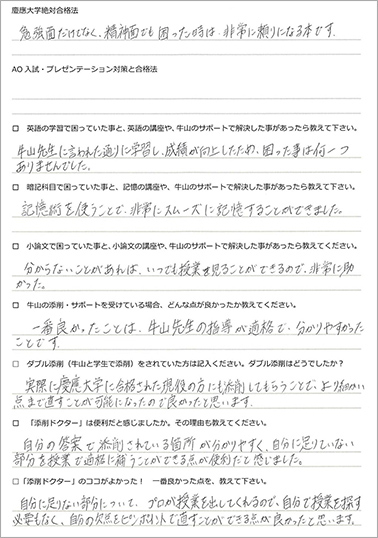 慶應大学絶対合格法
勉強面だけでなく、精神面でも困った時は、非常に頼りになる本です。
AO入試・プレゼンテーション対策と合格法
□ 英語の学習で困っていた事と、英語の講座や、牛山のサポートで解決した事があったら教えて下さい。
牛山先生に言われた通りに学習し、成績が向上したため、困った事は何一つ
ありませんでした。
□ 暗記科目で困っていた事と、記憶の講座や、牛山のサポートで解決した事があったら教えて下さい。
記憶術を使うことで、非常にスムーズに記憶することができました。
□ 小論文で困っていた事と、小論文の講座や、牛山のサポートで解決した事があったら教えてください。
分からないことがあれば、いつでも授業を見ることができるので、非常に助
かった。
□ 牛山の添削・サポートを受けている場合、どんな点が良かったか教えてください。
一番良かったことは、牛山先生の指導が適格で、分かりやすかった
ことです。
□ ダブル添削（牛山と学生で添削）をされていた方は記入ください。ダブル添削はどうでしたか？
実際に慶應大学に合格された現役の方にも添削してもらうことで、より細かい
点まで直すことが可能になったので良かったと思います。
□ 「添削ドクター」は便利だと感じましたか。その理由も教えてください。
自分の答案で添削されている箇所が分かりやすく、自分に足りていない
部分を授業で適格に補うことができる点が便利だと感じました。
□ 「添削ドクター」のココがよかった！　一番良かった点を、教えて下さい。
自分に足りない部分について、プロが授業を出してくれるので、自分で授業を探す
必要もなく、自分の欠点をピンポイントで直すことができる点が良かったと思います。